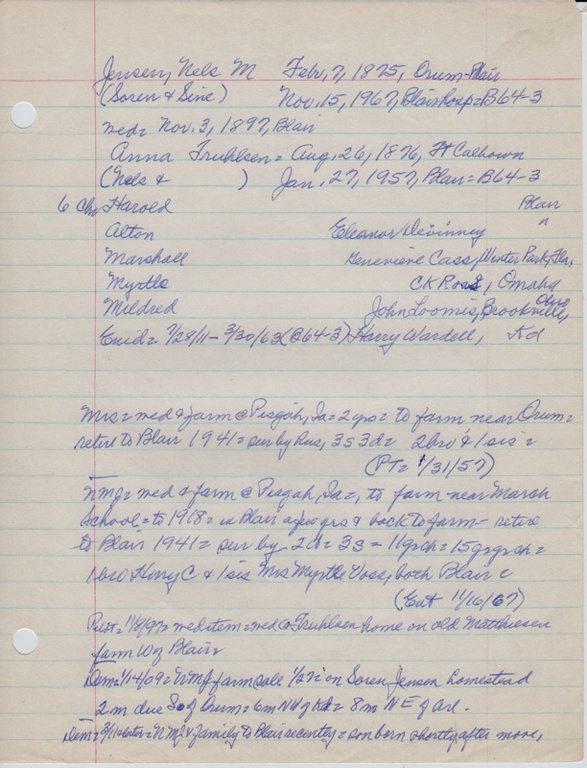 Jensen, Nels M Feb, 7, 1875, Orum-Blair
(Soren & Sine) Nov. 15, 1967, Blair hosp = B64-3
wed = Nov. 3, 1897, Blair
Anna Truhlsen = Aug, 26, 1876, Ft Calhoun
(Nels & ) Jan, 27, 1957, Blair = B64-3
6 Ch Harold Blair
Alton Eleanor Devinney "
Marshall Genevieve Cass, Winter Park, Fla,
Myrtle CK Ross, Omaha
Mildred John Loomis, Brookville, Ohio
Enid = 7/28/11 - 3/30/63 (B64-3) Harry Wardell, Kd
Mrs = wed & farm @ Pisgah, Ia = 2 yrs = to farm near Orum =
retire to Blair 1941 = sur by hus, 3s 3d = 2 bro & 1 sis =
(PT = 1/31/57)
NMJ = wed & farm @ Pisgah, Ia =, to farm near Marsh
School = to 1918 = in Blair a few yrs & back to farm - retire
to Blair 1941 = sur by 2d = 3s = 11 grch = 15 grgrch =
1 bro Henry C & 1 sis Mrs Myrtle Voss, both Blair =
(Ent 11/16/67)
11/8/97 = wed item = wed @ Truhlsen home on old Matthiesen
farm W of Blair =
Dem = 1/14/09 = NMJ farm sale 1/27 = on Soren Jensen homestead
2 m due S of Orum = 6m NW of Kd = 8m NE of Arl.
Dem = NMJ & family to Blair recently = son born shortly after move,